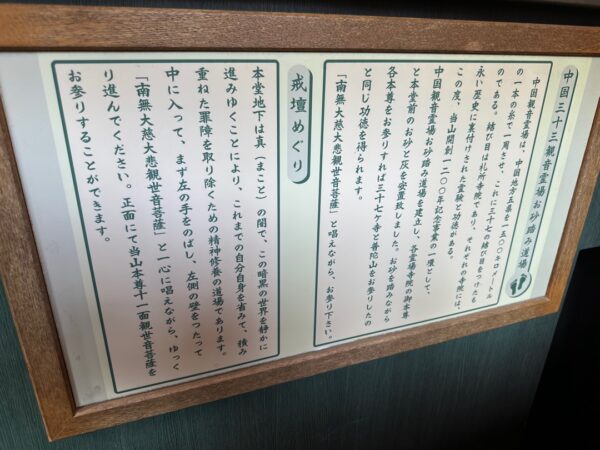 中国三十三観音霊場お砂踏み道場
中国観音霊場は、中国地方五県を一五〇〇キロメートル
の一本の糸で一周させ、これに三十七の結び目をつけたも
のである。結び目は札所寺院であり、それぞれの寺院には、
永い歴史に裏付けされた霊験と功徳がある。
この度、当山開創一二〇〇年記念事業の一環として、
中国観音霊場お砂踏み道場を建立し、各霊場寺院の御本尊
と本堂前のお砂と灰を安置致しました。お砂を踏みながら
各本尊をお参りすれば三十七ヶ寺と普陀山をお参りしたの
と同じ功徳を得られます。
「南無大慈大悲観世音菩薩」と唱えながら、お参り下さい。
戒壇めぐり
本堂地下は真(まこと)の闇で、この暗黒の世界を静かに
進みゆくことにより、これまでの自分自身を省みて、積み
重ねた罪障を取り除くための精神修養の道場であります。
中に入って、まず左の手をのばし、左側の壁をつたって
「南無大慈大悲観世音菩薩」と一心に唱えながら、ゆっく
り進んでください。正面にて当山本尊十一面観世音菩薩を
お参りすることができます。